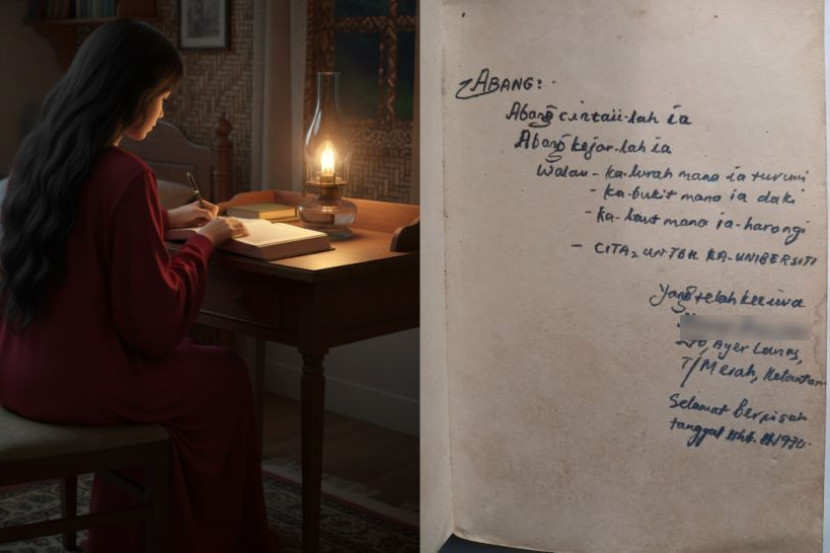 ABANG:
Abang cintaii-lah ia
Abang kejar-lah ia
Walau - ka-lurah mana ia turuni
- ka-bukit mana ia daki
- ka-laut mana ia-harongi
- CITA2 UNTOK KA-UNIBERSITI
Yang telah kecewa
Ayer Lanas,
T/Merah, Kelantan
Selamat Berpisah
tanggal 1970.